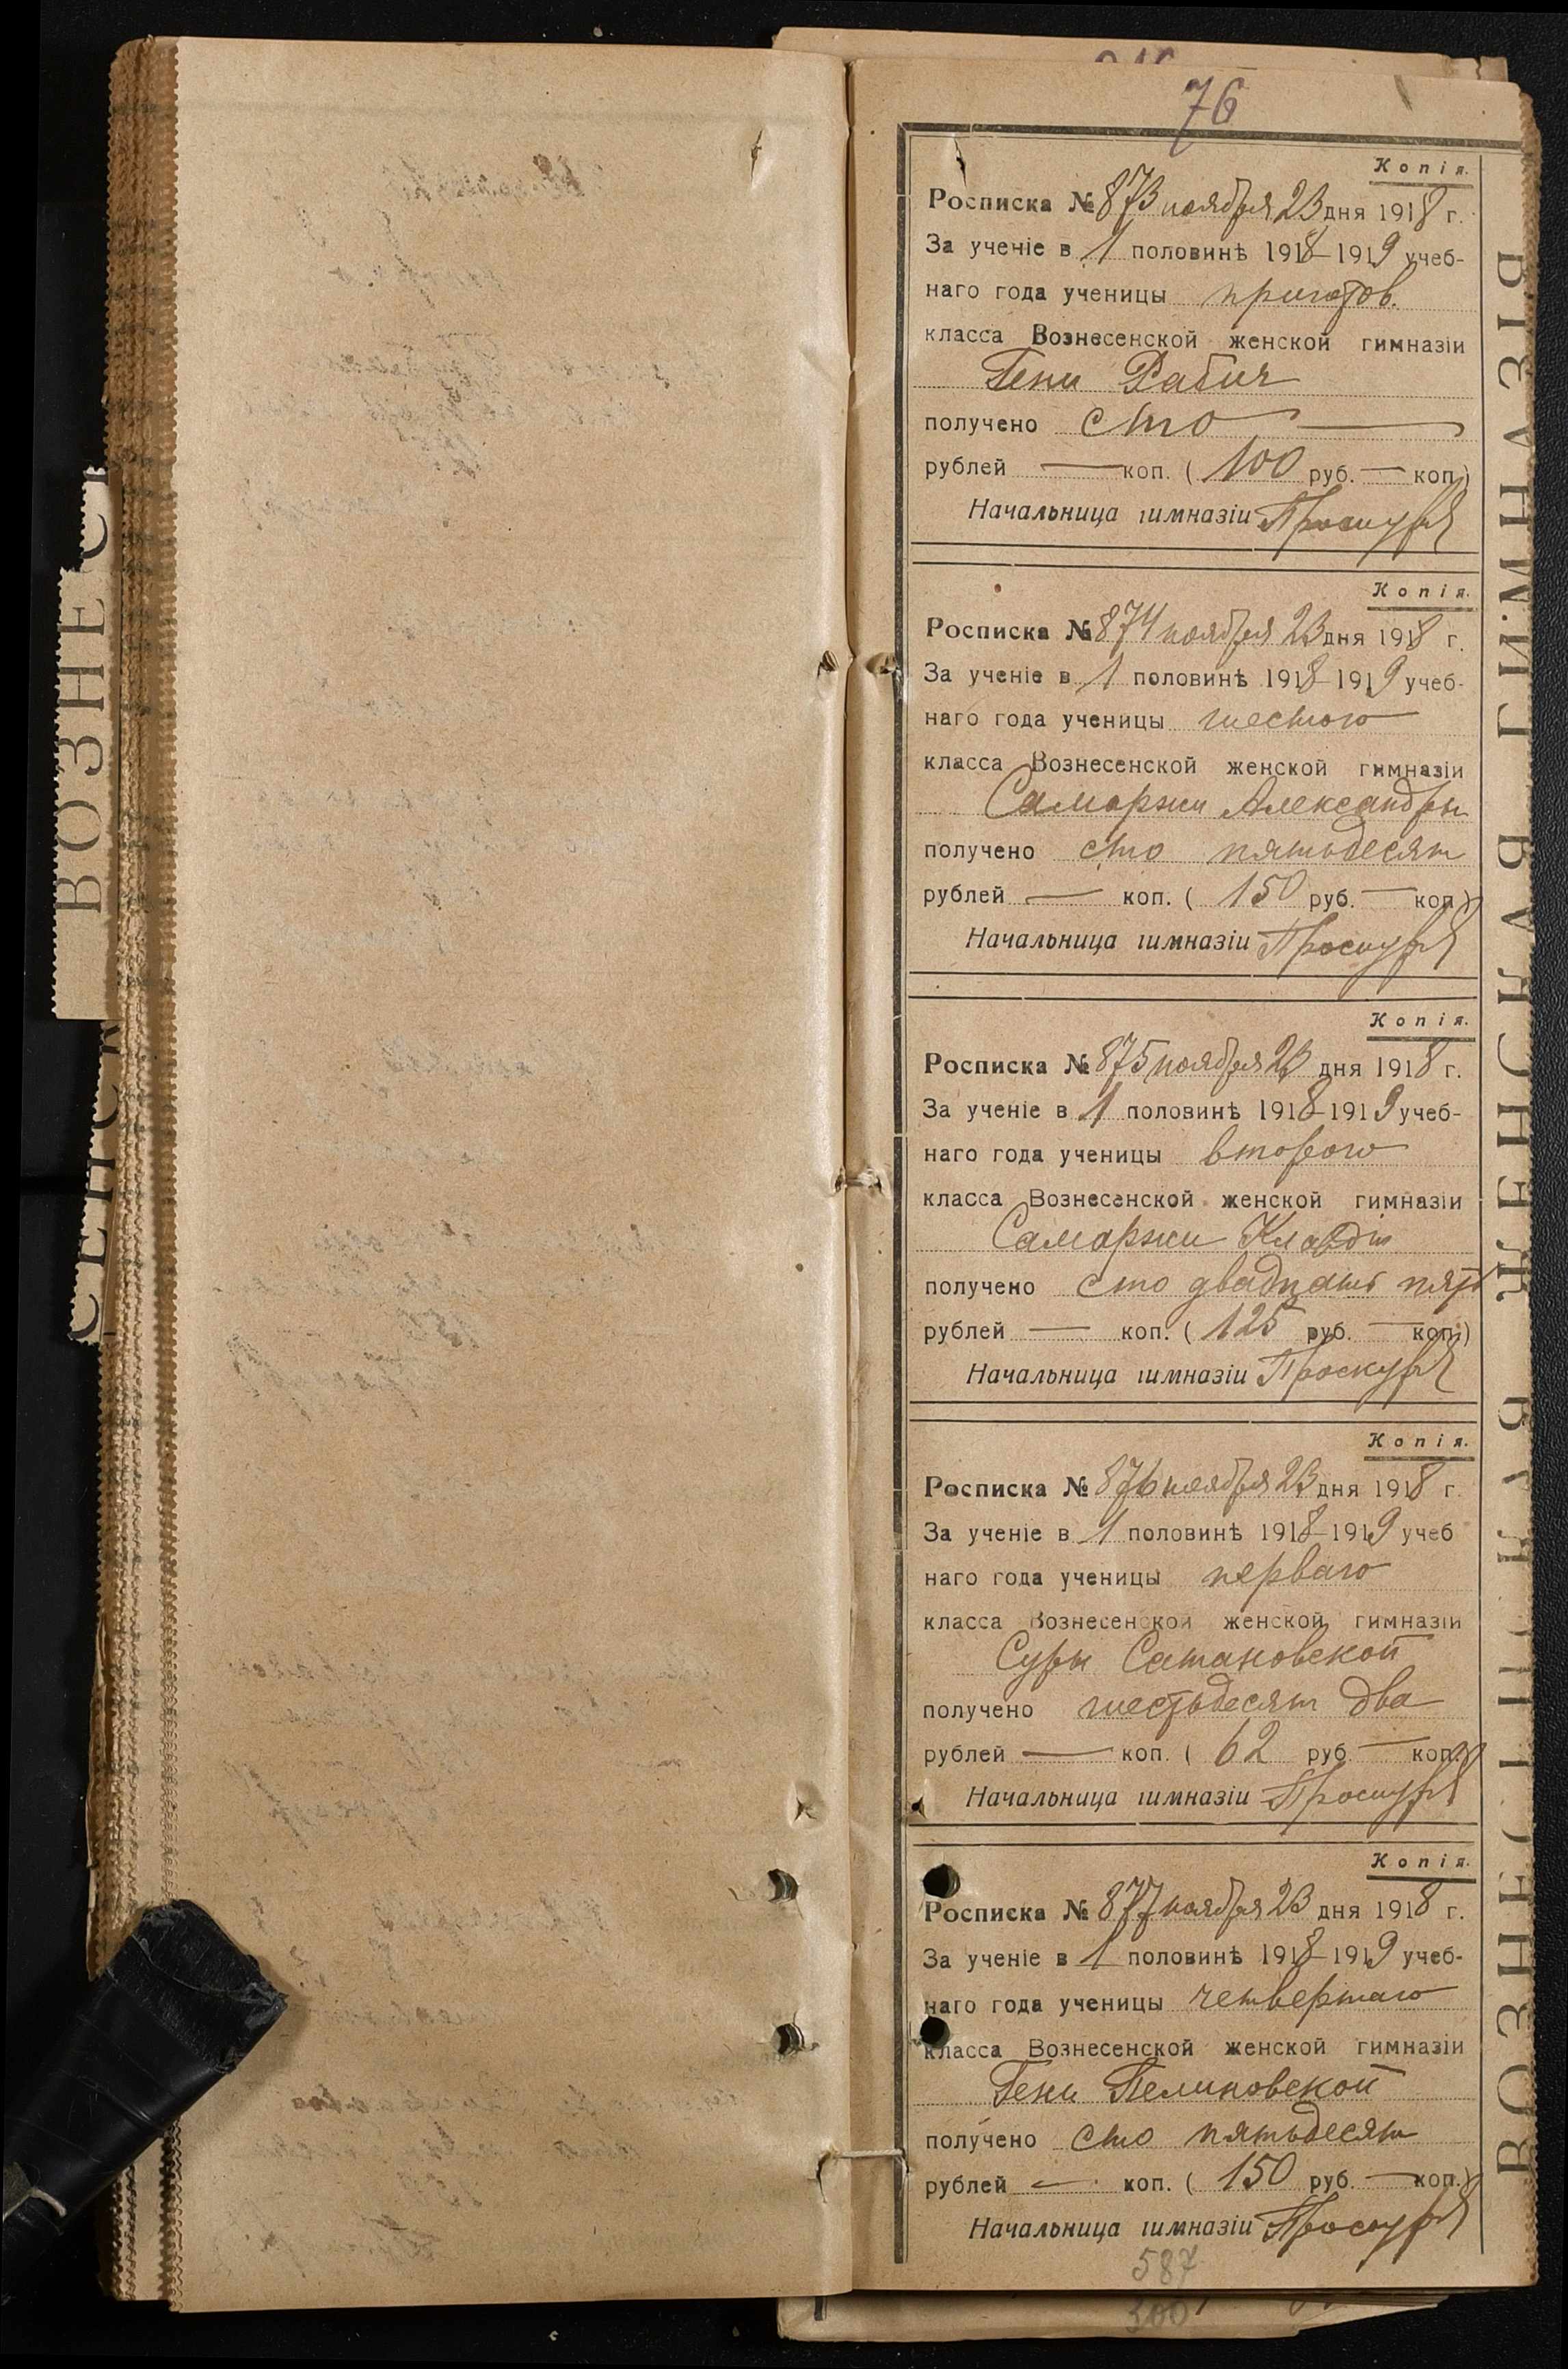 76
Копія.
Росписка № 873 ноября 23 дня 1918 г.
За ученіе в 1 половинѣ 1918-1919 учеб-
наго года ученицы приготов.
класса Вознесенской женской гимназіи
Гени Рабич
получено сто
рублей — коп. ( 100 руб. — коп.)
Начальница гимназіи Проскур
Копія.
Росписка № 874 ноября 23 дня 1918 г.
За ученіе в 1 половинѣ 1918-1919 учеб-
наго года ученицы шестого
класса Вознесенской женской гимназіи
Саморжи Александры
получено сто пятьдесят
рублей — коп. ( 150 руб. — коп.)
Начальница гимназіи Проскур
Копія.
Росписка № 875 ноября 23 дня 1918 г.
За ученіе в 1 половинѣ 1918-1919 учеб-
наго года ученицы второго
класса Вознесенской женской гимназіи
Саморжи Клавдіи
получено сто двадцать пять
рублей — коп. ( 125 руб. — коп.)
Начальница гимназіи Проскур
Копія.
Росписка № 876 ноября 23 дня 1918 г.
За ученіе в 1 половинѣ 1918-1919 учеб
наго года ученицы перваго
класса Вознесенской женской гимназіи
Суры Сатановской
получено шестьдесят два
рублей — коп. ( 62 руб. — коп.)
Начальница гимназіи Проскур
Копія.
Росписка № 877 ноября 23 дня 1918 г.
За ученіе в 1 половинѣ 1918-1919 учеб-
наго года ученицы четвертаго
класса Вознесенской женской гимназіи
Гени Телиновской
получено сто пятьдесят
рублей — коп. ( 150 руб. — коп.)
Начальница гимназіи Проскур
587
300
ВОЗНЕСЕНСКАЯ ЖЕНСКАЯ ГИМНАЗІЯ
ВОЗНЕС
СЕНСК